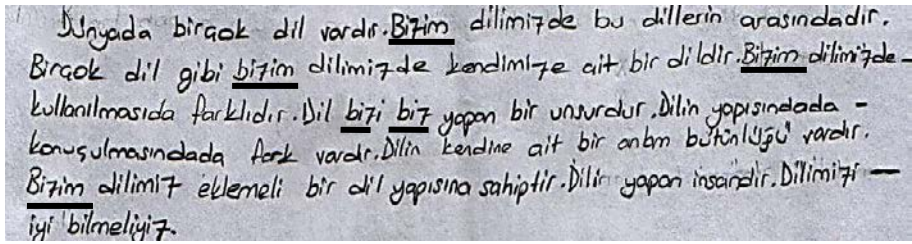 Dünyada birçok dil vardır. Bizim dilimizde bu dillerin arasındadır.
Birçok dil gibi bizim dilimizde kendimize ait bir dildir. Bizim dilimizde -
kullanılmasıda farklıdır. Dil bizi biz yapan bir unsurdur. Dilin yapısındada -
konuşulmasındada fark vardır. Dilin kendine ait bir anlam bütünlüğü vardır.
Bizim dilimiz eklemeli bir dil yapısına sahiptir. Dili yapan insandır. Dilimizi -
iyi bilmeliyiz.